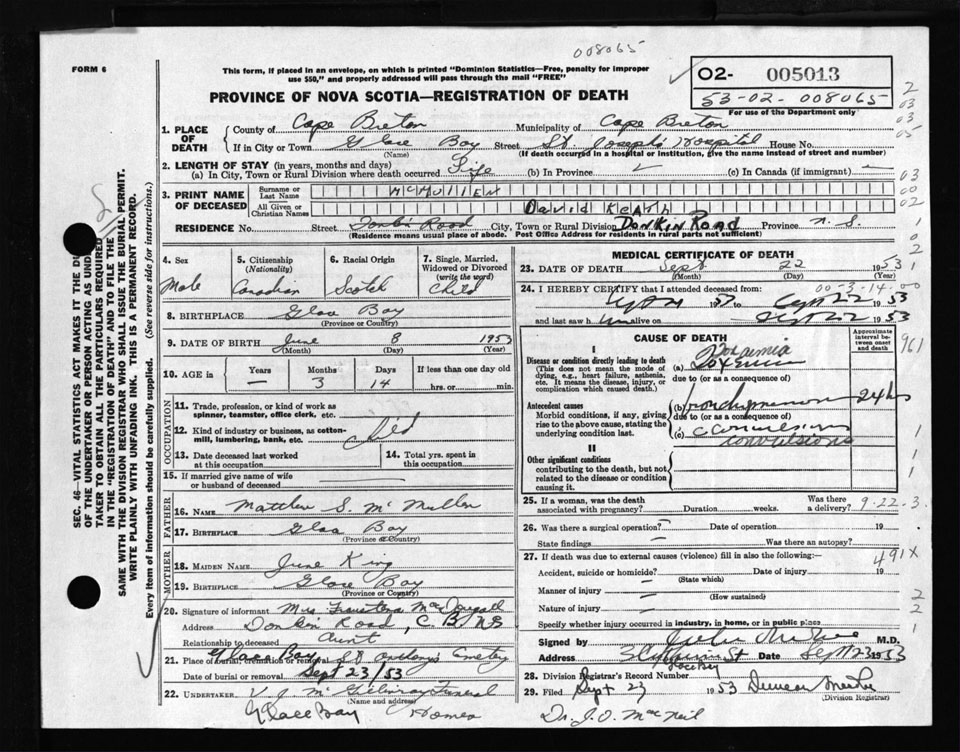 008065
FORM 6
This form, if placed in an envelope, on which is printed "Dominion Statistics—Free, penalty for improper use $50," and properly addressed will pass through the mail "FREE"
02- 005013
53-02-008065
For use of the Department only
PROVINCE OF NOVA SCOTIA—REGISTRATION OF DEATH
2
03
03
05
1. PLACE OF DEATH County of Cape Breton Municipality of Cape Breton
If in City or Town Glace Bay Street St. Joseph's Hospital House No.
(Name) (If death occurred in a hospital or institution, give the name instead of street and number)
2. LENGTH OF STAY (in years, months and days)
(a) In City, Town or Rural Division where death occurred Life (b) In Province (c) In Canada (if immigrant)
03
00
02
3. PRINT NAME OF DECEASED Surname or Last Name McMullen
All Given or Christian Names David Keath
RESIDENCE No. Street Road City, Town or Rural Division Donkin Road Province N.S.
(Residence means usual place of abode. Post Office Address for residents in rural parts not sufficient)
SEC. 46—VITAL STATISTICS ACT MAKES IT THE
OF THE UNDERTAKER OR PERSON ACTING AS
TAKER TO OBTAIN ALL THE PARTICULARS REQUIRED
IN THE "REGISTRATION OF DEATH" AND TO FILE THE
SAME WITH THE DIVISION REGISTRAR WHO SHALL ISSUE THE BURIAL PERMIT.
WRITE PLAINLY WITH UNFADING INK. THIS IS A PERMANENT RECORD.
Every item of information should be carefully supplied. (See reverse side for instructions.)
4. Sex Male
5. Citizenship (Nationality) Canadian
6. Racial Origin Scotch
7. Single, Married, Widowed or Divorced (write the word) Child
8. BIRTHPLACE Glace Bay
(Province or Country)
9. DATE OF BIRTH June 8 1953
(Month) (Day) (Year)
10. AGE in Years — Months 3 Days 14 If less than one day old hrs. or min.
OCCUPATION
11. Trade, profession, or kind of work as spinner, teamster, office clerk, etc.
12. Kind of industry or business, as cotton-mill, lumbering, bank, etc. child
13. Date deceased last worked at this occupation
14. Total yrs. spent in this occupation
15. If married give name of wife or husband of deceased
FATHER
16. Name Matthew S. McMullen
17. BIRTHPLACE Glace Bay
(Province or Country)
MOTHER
18. MAIDEN NAME June King
19. BIRTHPLACE Glace Bay
(Province or Country)
20. Signature of informant Mrs MacDougall
Address Donkin Road, C.B. N.S.
Relationship to deceased Aunt
21. Place of burial, cremation or removal Glace Bay St Anthony's Cemetery
Date of burial or removal Sept 23/53
22. UNDERTAKER V. J. McGillivray Funeral
(Name and address)
Glace Bay Homes
MEDICAL CERTIFICATE OF DEATH
23. DATE OF DEATH Sept 22 1953
(Month) (Day) (Year)
00-3-14-00
24. I HEREBY CERTIFY that I attended deceased from:
Sept 22 1953
and last saw h alive on Sept 22 1953
CAUSE OF DEATH
Approximate interval between onset and death
I
Disease or condition directly leading to death
(This does not mean the mode of dying, e.g., heart failure, asthenia, etc. It means the disease, injury, or complication which caused death.)
(a) Toxaemia
due to (or as a consequence of)
Antecedent causes
Morbid conditions, if any, giving rise to the above cause, stating the underlying condition last.
(b) bronchopneumonia 24 hrs
due to (or as a consequence of)
(c) convulsions
convulsions
II
Other significant conditions
contributing to the death, but not related to the disease or condition causing it.
25. If a woman, was the death associated with pregnancy? Duration weeks. Was there a delivery?
9-22-3
26. Was there a surgical operation? Date of operation 19
State findings — Was there an autopsy?
27. If death was due to external causes (violence) fill in also the following:—
491X
Accident, suicide or homicide? Date of injury 19
(State which)
Manner of injury —
(How sustained)
Nature of injury —
Specify whether injury occurred in industry, in home, or in public place
Signed by M.D.
Address St Date Sept 23 1953
28. Division Registrar's Record Number
29. Filed Sept 23 1953 Duncan
(Division Registrar)
Dr. J. O. MacNeil